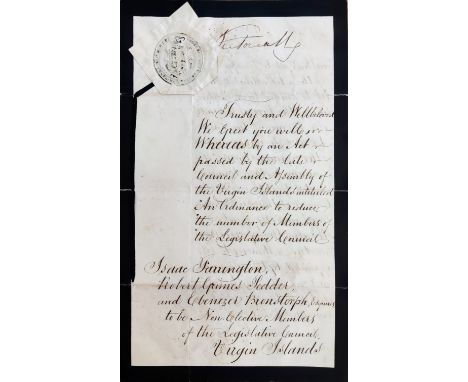 Victoria R
Trusty and Wellbeloved
We Greet you well
Whereas by an Act
passed by the late
Council and Assembly of
the Virgin Islands intituled
"An Ordinance to reduce
the number of Members of
the Legislative Council
Isaac Farrington,
Robert Grimes Pedder,
and Ebenezer Bronstorph, Esquires
to be Non Elective Members
of the Legislative Council
Virgin Islands